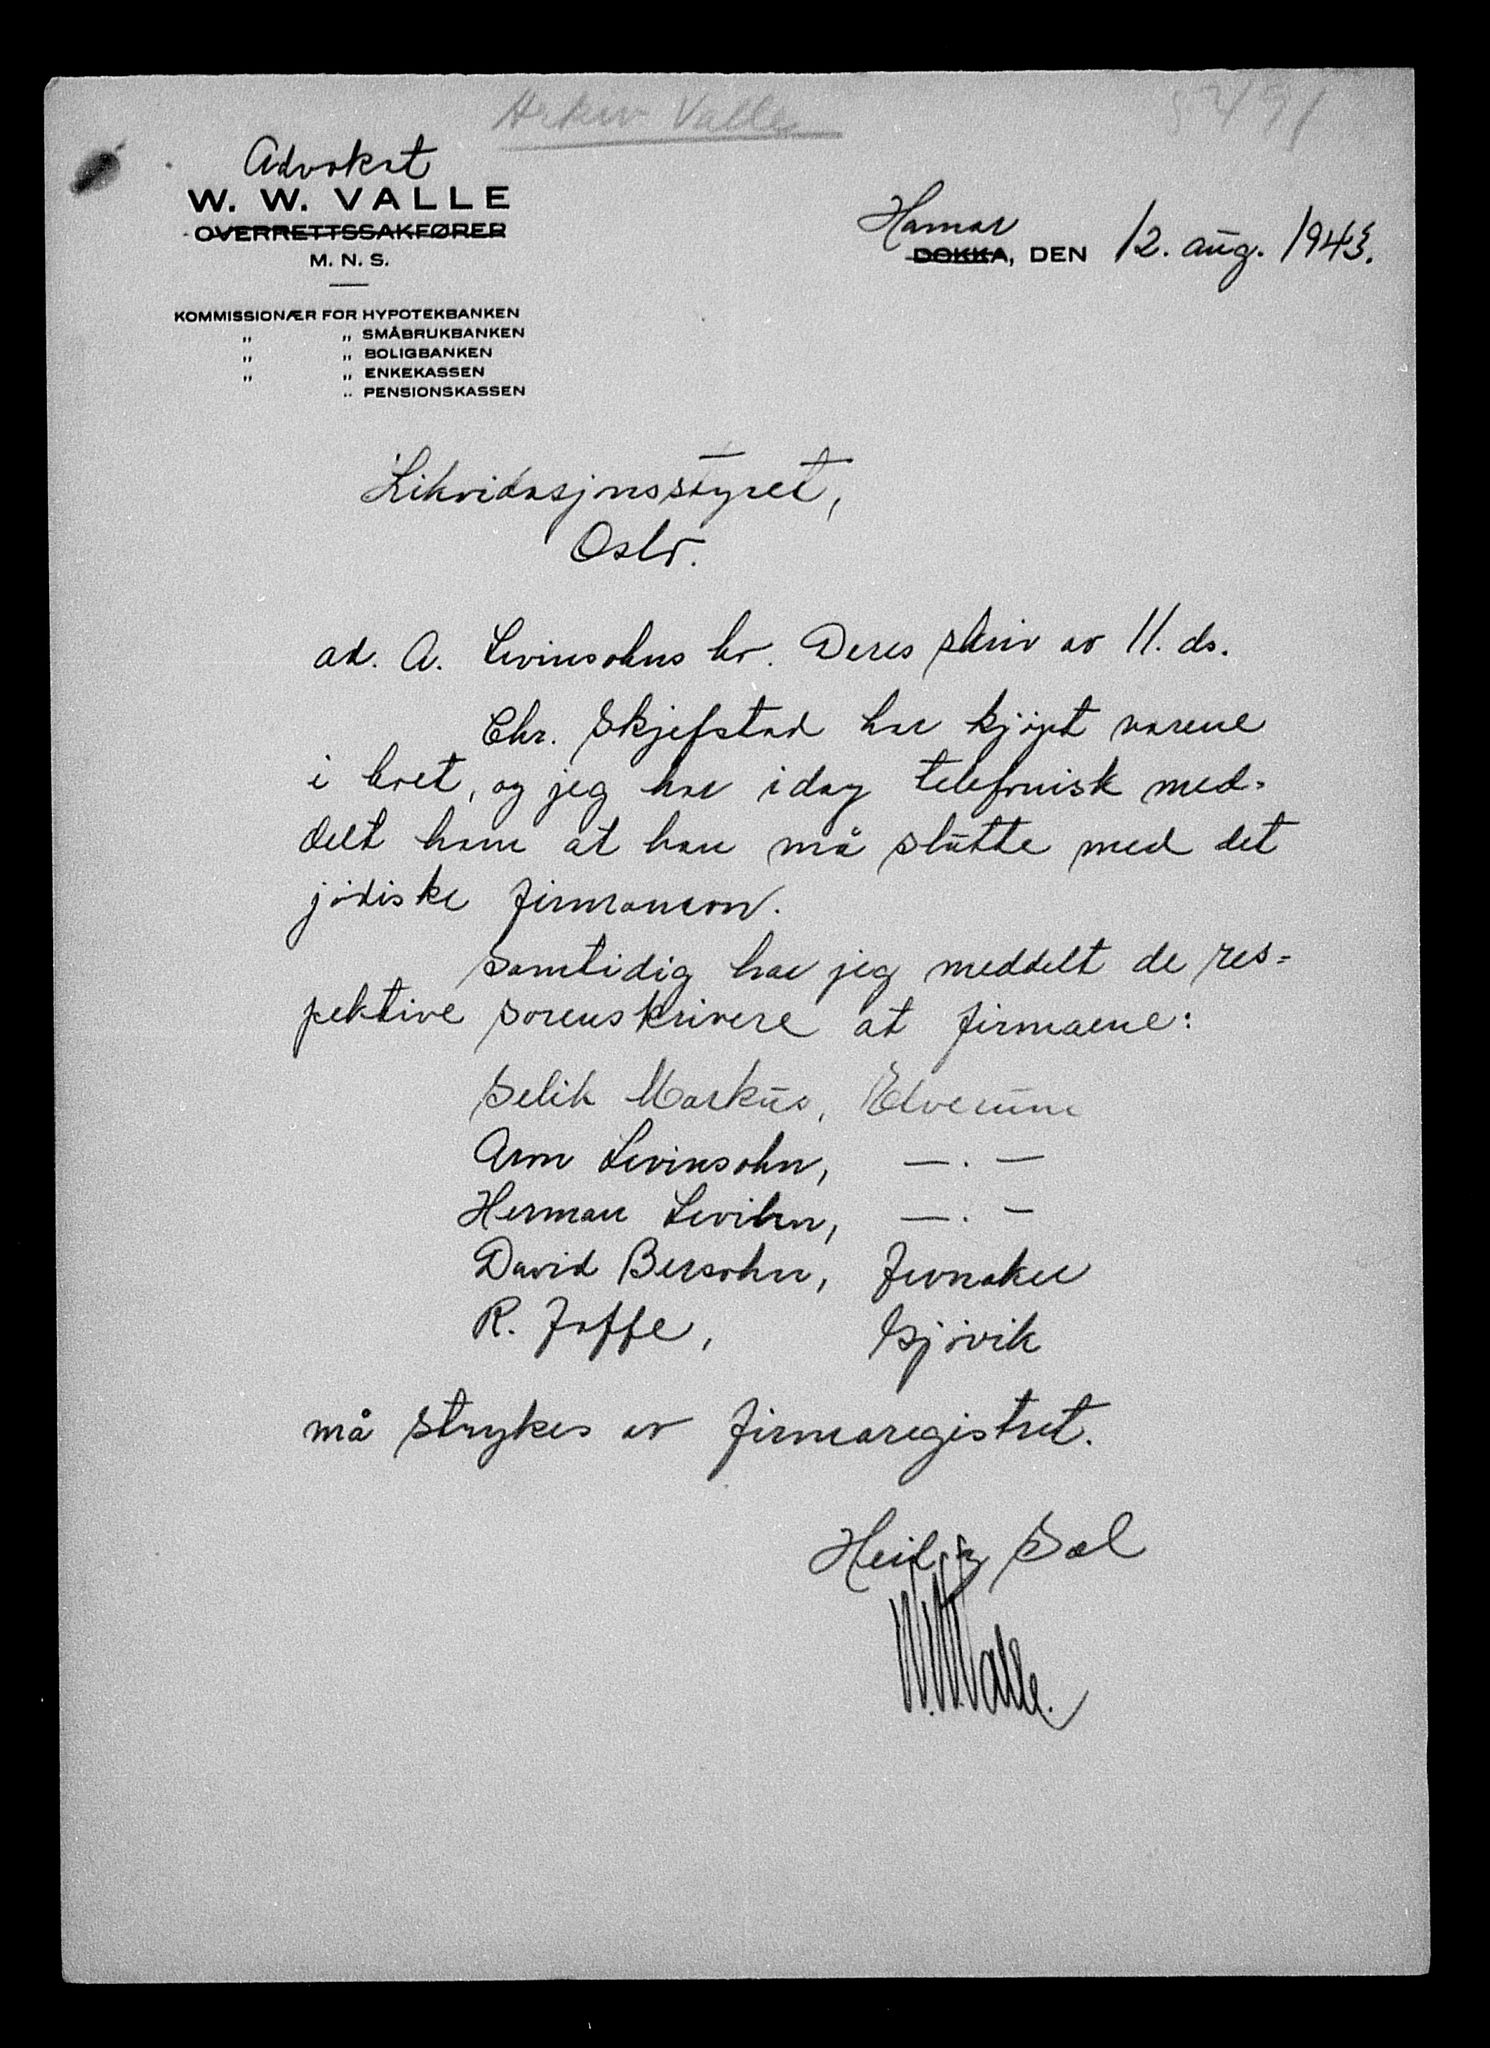 Arkiv Valle
Advokat
W. W. VALLE
OVERRETTSSAKFØRER
M. N. S.
KOMMISSIONÆR FOR HYPOTEKBANKEN
„ „ SMÅBRUKBANKEN
„ „ BOLIGBANKEN
„ „ ENKEKASSEN
„ PENSIONSKASSEN
Hamar
DOKKA, DEN 12. aug. 1943.
Likvidasjonsstyret,
Oslo.
ad. A. Levinsohns bo. Deres skriv av 11. ds.
Chr. Skjefstad har kjøpt varene
i boet, og jeg har idag telefonisk med-
delt ham at han må slutte med det
jødiske firmanavn.
Samtidig har jeg meddelt de res-
pektive sorenskrivere at firmaene:
Selik Markus, Elverum
Aron Levinsohn, — . —
Herman Levihn, — . —
David Bersohn, Jevnaker
R. Jaffe, Gjøvik
må strykes av firmaregistret.
Heil og Sæl
W. W. Valle.